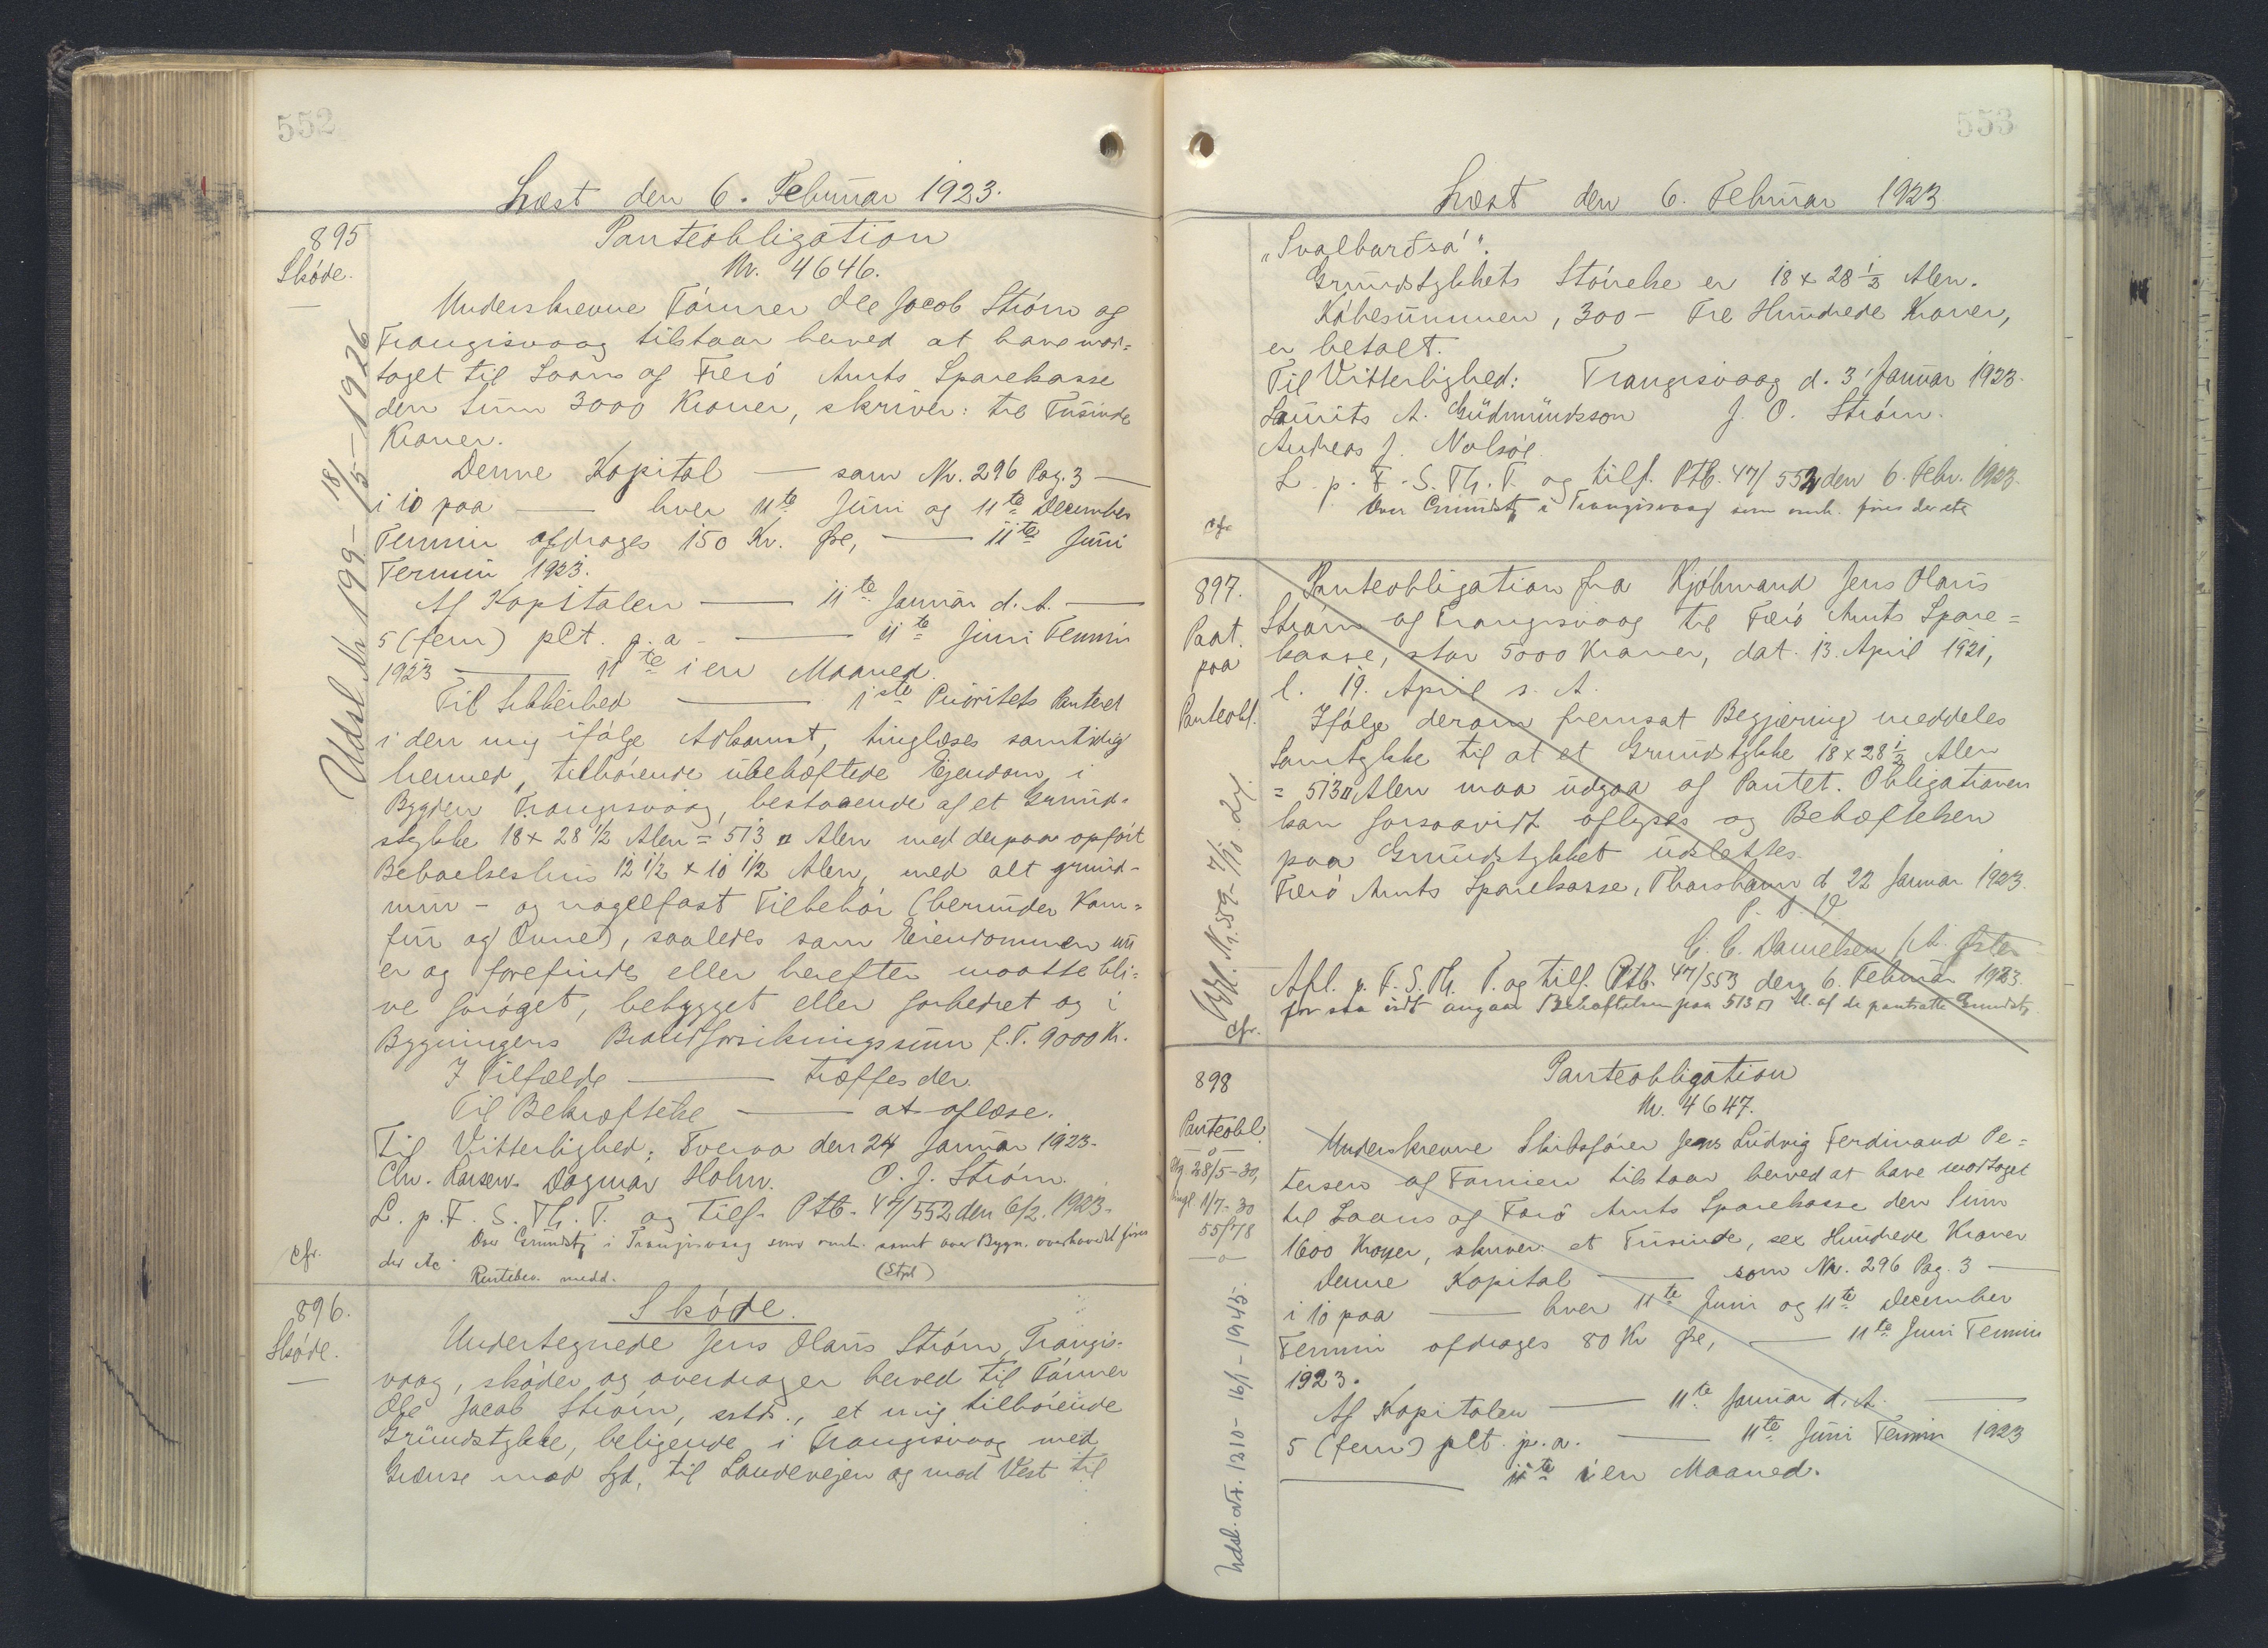 552
Læst den 6. Februar 1923.
895
Skøde.
Udsl. Nr 199 - 18/5 - 1926
Panteobligation
Nr. 4646.
Underskrevne Tømrer Ole Jacob Strøm og
Trangisvaag tilstaar herved at have mod=
taget til Laans af Færø Amts Sparekasse
den Sum 3000 Kroner, skriver: tre Tusinde
Kroner.
Denne Kapital — som Nr. 296 Pag. 3 —
i 10 paa — hver 11te Juni og 11te December
Termin afdrages 150 Kr. Øre, — 11te Juni
Termin 1923.
Af Kapitalen — 11te Januar d. A. —
5 (fem) pCt. p. a. — 11te Juni Termin
1923 — 11te i en Maaned.
Til Sikkerhed — 1ste Prioritets Panteret
i den mig ifølge Adkomst, tinglæses samtidig
hermed, tilhørende ubehæftede Ejendom i
Bygden Trangisvaag, bestaaende af et Grund-
stykke 18 x 28 1/2 Alen = 513 □ Alen med derpaa opført
Beboelseshus 12 1/2 x 10 1/2 Alen, med alt grund-
mur- og nagelfast Tilbehør (herunder Kom=
fur og Ovne), saaledes som Eiendommen nu
er og forefindes eller herefter maatte bli=
ve forøget, bebygget eller forbedret og i
Bygningens Brandforsikringssum f. T. 9000 Kr.
I Tilfælde — træffes der.
Til Bekræftelse — at aflæse.
Til Vitterlighed: Tveraa den 24 Januar 1923.
Chr. Larsen. Dagmar Holm. O. J. Strøm.
L. p. F. S. Th. T. og tilf. Ptb. 47/552 den 6/2. 1923.
Over Grundst. i Trangisvaag som omh. samt over Bygn. overhovedet føres
cfr.
der etc
Rentebev. medd. (Stpl)
896.
Skøde.
Skøde.
Undertegnede Jens Olaus Strøm, Trangis-
vaag, skøder og overdrager herved til Tømrer
Ole Jacob Strøm, sstds., et mig tilhørende
Grundstykke, beligende i Trangisvaag med
Grænse mod Syd, til Landevejen og mod Vest til
553
Læst den 6. Februar 1923.
"Svalbarðsá".
Grundstykkets Størrelse er 18 x 28 1/2 Alen.
Købesummen, 300 - Tre Hundrede Kroner,
er betalt.
Til Vitterlighed: Trangisvaag d. 3 Januar 1923.
Laurits A. Gudmundsson J. O. Strøm.
Andreas J. Nolsøe.
L. p. F. S. Th. T. og tilf. Ptb. 47/552 den 6. Febr. 1923.
Over Grundst. i Trangisvaag som omh. føres der etc
cfr.
897.
Paat.
paa
Panteobl.
Panteobligation fra Kjøbmand Jens Olaus
Strøm af Trangisvaag til Færø Amts Spare=
kasse, stor 5000 Kroner, dat. 13. April 1921,
l. 19. April s. A.
Ifølge derom fremsat Begjæring meddeles
Samtykke til at et Grundstykke 18 x 28 1/2 Alen
= 513 □ Alen maa udgaa af Pantet. Obligationen
kan forsaavidt aflyses og Behæftelsen
paa Grundstykket udslettes.
Færø Amts Sparekasse, Thorshavn d 22 Januar 1923.
P. D. V.
C. C. Danielsen / A. Øster
Afl. p. F. S. Th. T. og tilf. Ptb. 47/553 den 6. Februar 1923.
for saa vidt angaar Behæftelsen paa 513 □ Al. af de pantsatte Grundst.
cfr.
898
Panteobl.
28/5-30,
tingl 1/7-30
55/778
Udsl. Nr. 1210 - 16/1 - 1945.
Panteobligation
Nr. 4647.
Underskrevne Skibsfører Jens Ludvig Ferdinand Pe=
tersen af Famien tilstaar herved at have modtaget
til Laans af Færø Amts Sparekasse den Sum
1600 Kroner, skriver: et Tusinde, sex Hundrede Kroner
Denne Kapital — som Nr. 296 Pag. 3 —
i 10 paa — hver 11te Juni og 11te December
Termin afdrages 80 Kr Øre, — 11te Juni Termin
1923.
Af Kapitalen — 11te Januar d. A. —
5 (fem) pCt. p. a. — 11te Juni Termin 1923
— 11te i en Maaned.